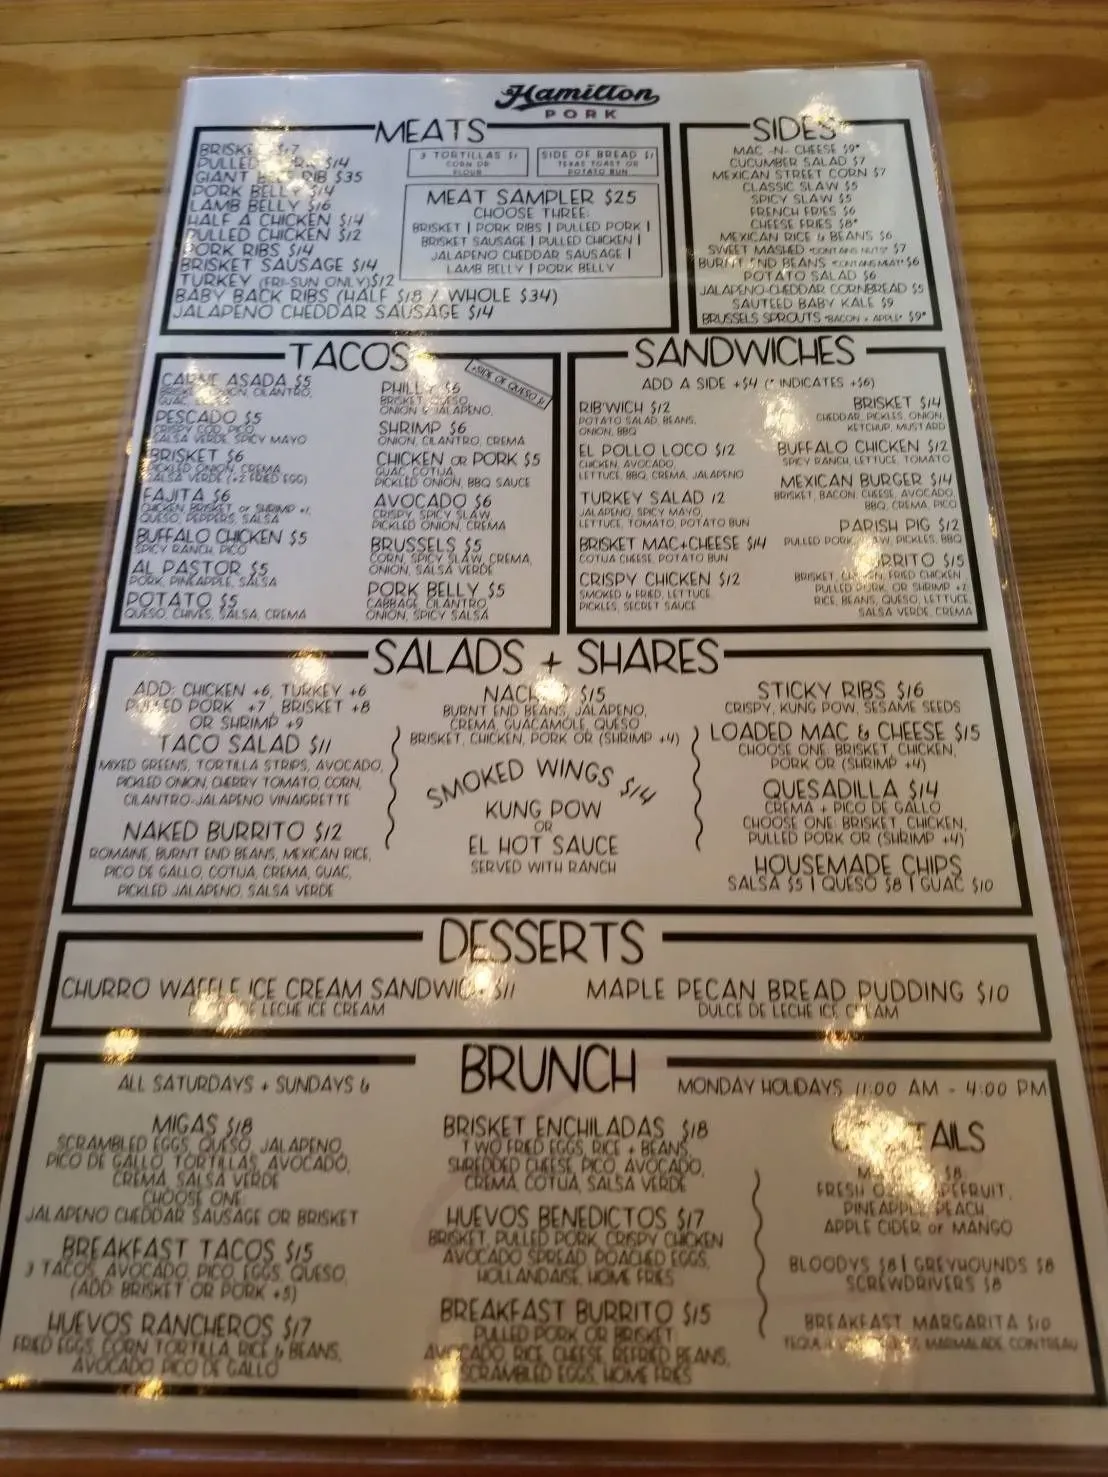 Hamilton
PORK
MEATS
BRISKET $17
PULLED $14
GIANT RIB $35
PORK BELLY $14
LAMB BELLY $16
HALF A CHICKEN $14
PULLED CHICKEN $12
PORK RIBS $14
BRISKET SAUSAGE $14
TURKEY (FRI-SUN ONLY) $12
BABY BACK RIBS (HALF $18 / WHOLE $34)
JALAPENO CHEDDAR SAUSAGE $14
3 TORTILLAS $1
CORN OR
FLOUR
SIDE OF BREAD $1
TEXAS TOAST OR
POTATO BUN
MEAT SAMPLER $25
CHOOSE THREE:
BRISKET | PORK RIBS | PULLED PORK |
BRISKET SAUSAGE | PULLED CHICKEN |
JALAPENO CHEDDAR SAUSAGE |
LAMB BELLY | PORK BELLY
SIDES
MAC -N- CHEESE $9*
CUCUMBER SALAD $7
MEXICAN STREET CORN $7
CLASSIC SLAW $5
SPICY SLAW $5
FRENCH FRIES $6
CHEESE FRIES $8*
MEXICAN RICE & BEANS $6
SWEET MASHED *CONTAINS NUTS* $7
BURNT END BEANS *CONTAINS MEAT* $6
POTATO SALAD $6
JALAPENO-CHEDDAR CORNBREAD $5
SAUTEED BABY KALE $9
BRUSSELS SPROUTS *BACON + APPLE* $9*
TACOS
+SIDE OF QUESO
CARNE ASADA $5
ONION, CILANTRO,
GUAC,
PESCADO $5
CRISPY COD, PICO,
SALSA VERDE, SPICY MAYO
BRISKET $6
PICKLED ONION, CREMA
SALSA VERDE (+2 FRIED EGG)
FAJITA $6
CHICKEN, BRISKET or SHRIMP +1,
QUESO, PEPPERS, SALSA
BUFFALO CHICKEN $5
SPICY RANCH, PICO
AL PASTOR $5
PORK, PINEAPPLE, SALSA
POTATO $5
QUESO, CHIVES, SALSA, CREMA
PHILLY $6
BRISKET, QUESO,
ONION & JALAPENO,
SHRIMP $6
ONION, CILANTRO, CREMA
CHICKEN OR PORK $5
GUAC, COTIJA,
PICKLED ONION, BBQ SAUCE
AVOCADO $6
CRISPY, SPICY SLAW,
PICKLED ONION, CREMA
BRUSSELS $5
CORN, SPICY SLAW, CREMA,
ONION, SALSA VERDE
PORK BELLY $5
CABBAGE, CILANTRO
ONION, SPICY SALSA
SANDWICHES
ADD A SIDE +$4 (* INDICATES +$6)
RIB'WICH $12
POTATO SALAD, BEANS,
ONION, BBQ
EL POLLO LOCO $12
CHICKEN, AVOCADO,
LETTUCE, BBQ, CREMA, JALAPENO
TURKEY SALAD 12
JALAPENO, SPICY MAYO,
LETTUCE, TOMATO, POTATO BUN
BRISKET MAC+CHEESE $14
COTIJA CHEESE, POTATO BUN
CRISPY CHICKEN $12
SMOKED & FRIED, LETTUCE,
PICKLES, SECRET SAUCE
BRISKET $14
CHEDDAR, PICKLES, ONION,
KETCHUP, MUSTARD
BUFFALO CHICKEN $12
SPICY RANCH, LETTUCE, TOMATO
MEXICAN BURGER $14
BRISKET, BACON, CHEESE, AVOCADO,
BBQ, CREMA, PICO
PARISH PIG $12
PULLED PORK, PICKLES, BBQ
$15
BRISKET, FRIED CHICKEN
PULLED PORK, OR SHRIMP +2
RICE, BEANS, QUESO, LETTUCE,
SALSA VERDE, CREMA
SALADS + SHARES
ADD: CHICKEN +6, TURKEY +6
PULLED PORK +7, BRISKET +8
OR SHRIMP +9
TACO SALAD $11
MIXED GREENS, TORTILLA STRIPS, AVOCADO,
PICKLED ONION, CHERRY TOMATO, CORN,
CILANTRO-JALAPENO VINAIGRETTE
NAKED BURRITO $12
ROMAINE, BURNT END BEANS, MEXICAN RICE,
PICO DE GALLO, COTIJA, CREMA, GUAC,
PICKLED JALAPENO, SALSA VERDE
NACHO $15
BURNT END BEANS, JALAPENO,
CREMA, GUACAMOLE, QUESO
BRISKET, CHICKEN, PORK OR (SHRIMP +4)
SMOKED WINGS $14
KUNG POW
OR
EL HOT SAUCE
SERVED WITH RANCH
STICKY RIBS $16
CRISPY, KUNG POW, SESAME SEEDS
LOADED MAC & CHEESE $15
CHOOSE ONE: BRISKET, CHICKEN,
PORK OR (SHRIMP +4)
QUESADILLA $14
CREMA + PICO DE GALLO
CHOOSE ONE: BRISKET, CHICKEN,
PULLED PORK OR (SHRIMP +4)
HOUSEMADE CHIPS
SALSA $5 | QUESO $8 | GUAC $10
DESSERTS
CHURRO WAFFLE ICE CREAM SANDWICH $11
DE LECHE ICE CREAM
MAPLE PECAN BREAD PUDDING $10
DULCE DE LECHE ICE CREAM
BRUNCH
ALL SATURDAYS + SUNDAYS &
MONDAY HOLIDAYS 11:00 AM - 4:00 PM
MIGAS $18
SCRAMBLED EGGS, QUESO, JALAPENO,
PICO DE GALLO, TORTILLAS, AVOCADO,
CREMA, SALSA VERDE
CHOOSE ONE:
JALAPENO CHEDDAR SAUSAGE OR BRISKET
BREAKFAST TACOS $15
3 TACOS, AVOCADO, PICO, EGGS, QUESO,
(ADD: BRISKET OR PORK +5)
HUEVOS RANCHEROS $17
FRIED EGGS, CORN TORTILLA, RICE & BEANS,
AVOCADO, PICO DE GALLO
BRISKET ENCHILADAS $18
TWO FRIED EGGS, RICE + BEANS,
SHREDDED CHEESE, PICO, AVOCADO,
CREMA, COTIJA, SALSA VERDE
HUEVOS BENEDICTOS $17
BRISKET, PULLED PORK, CRISPY CHICKEN
AVOCADO SPREAD, POACHED EGGS,
HOLLANDAISE, HOME FRIES
BREAKFAST BURRITO $15
PULLED PORK OR BRISKET
AVOCADO, RICE, CHEESE, REFRIED BEANS,
SCRAMBLED EGGS, HOME FRIES
COCKTAILS
$8
FRESH GRAPEFRUIT,
PINEAPPLE, PEACH,
APPLE CIDER or MANGO
BLOODYS $8 | GREYHOUNDS $8
SCREWDRIVERS $8
BREAKFAST MARGARITA $10
MARMALADE, COINTREAU